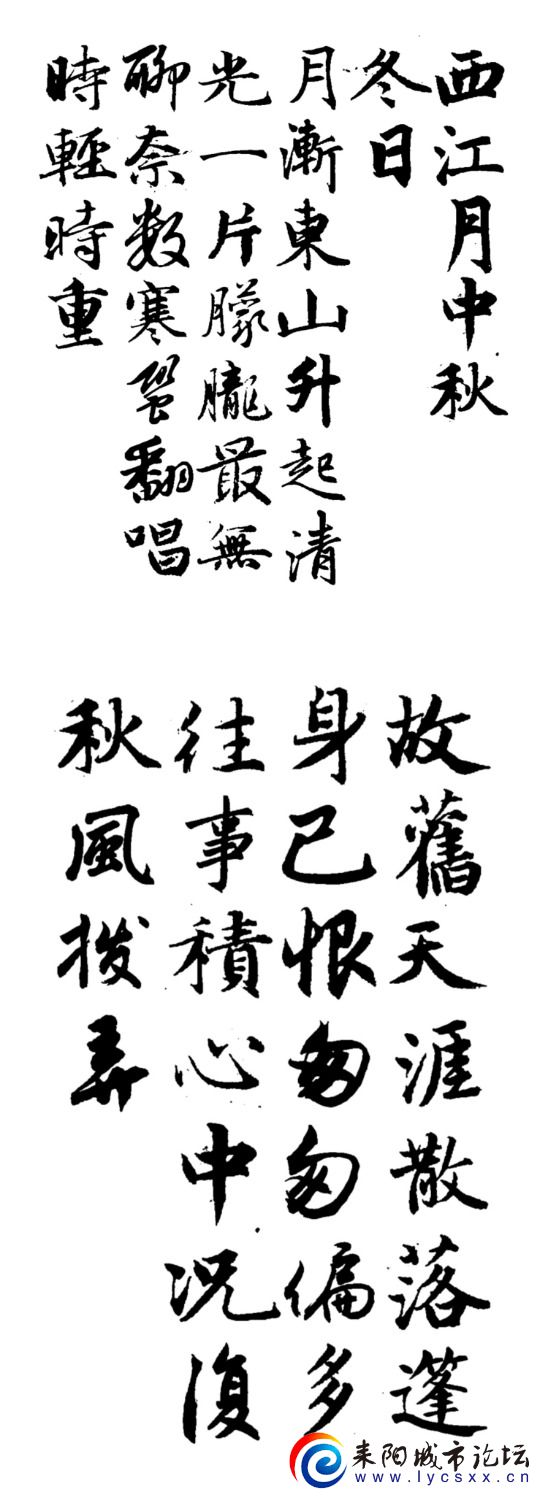 西江月中秋
冬日
月漸東山升起清
光一片朦朧最無
聊奈数寒蛩翻唱
時輕時重
故舊天涯散落蓬
身已恨匆匆偏多
往事積心中况復
秋風拨弄
耒阳城市论坛
www.lycsxx.cn